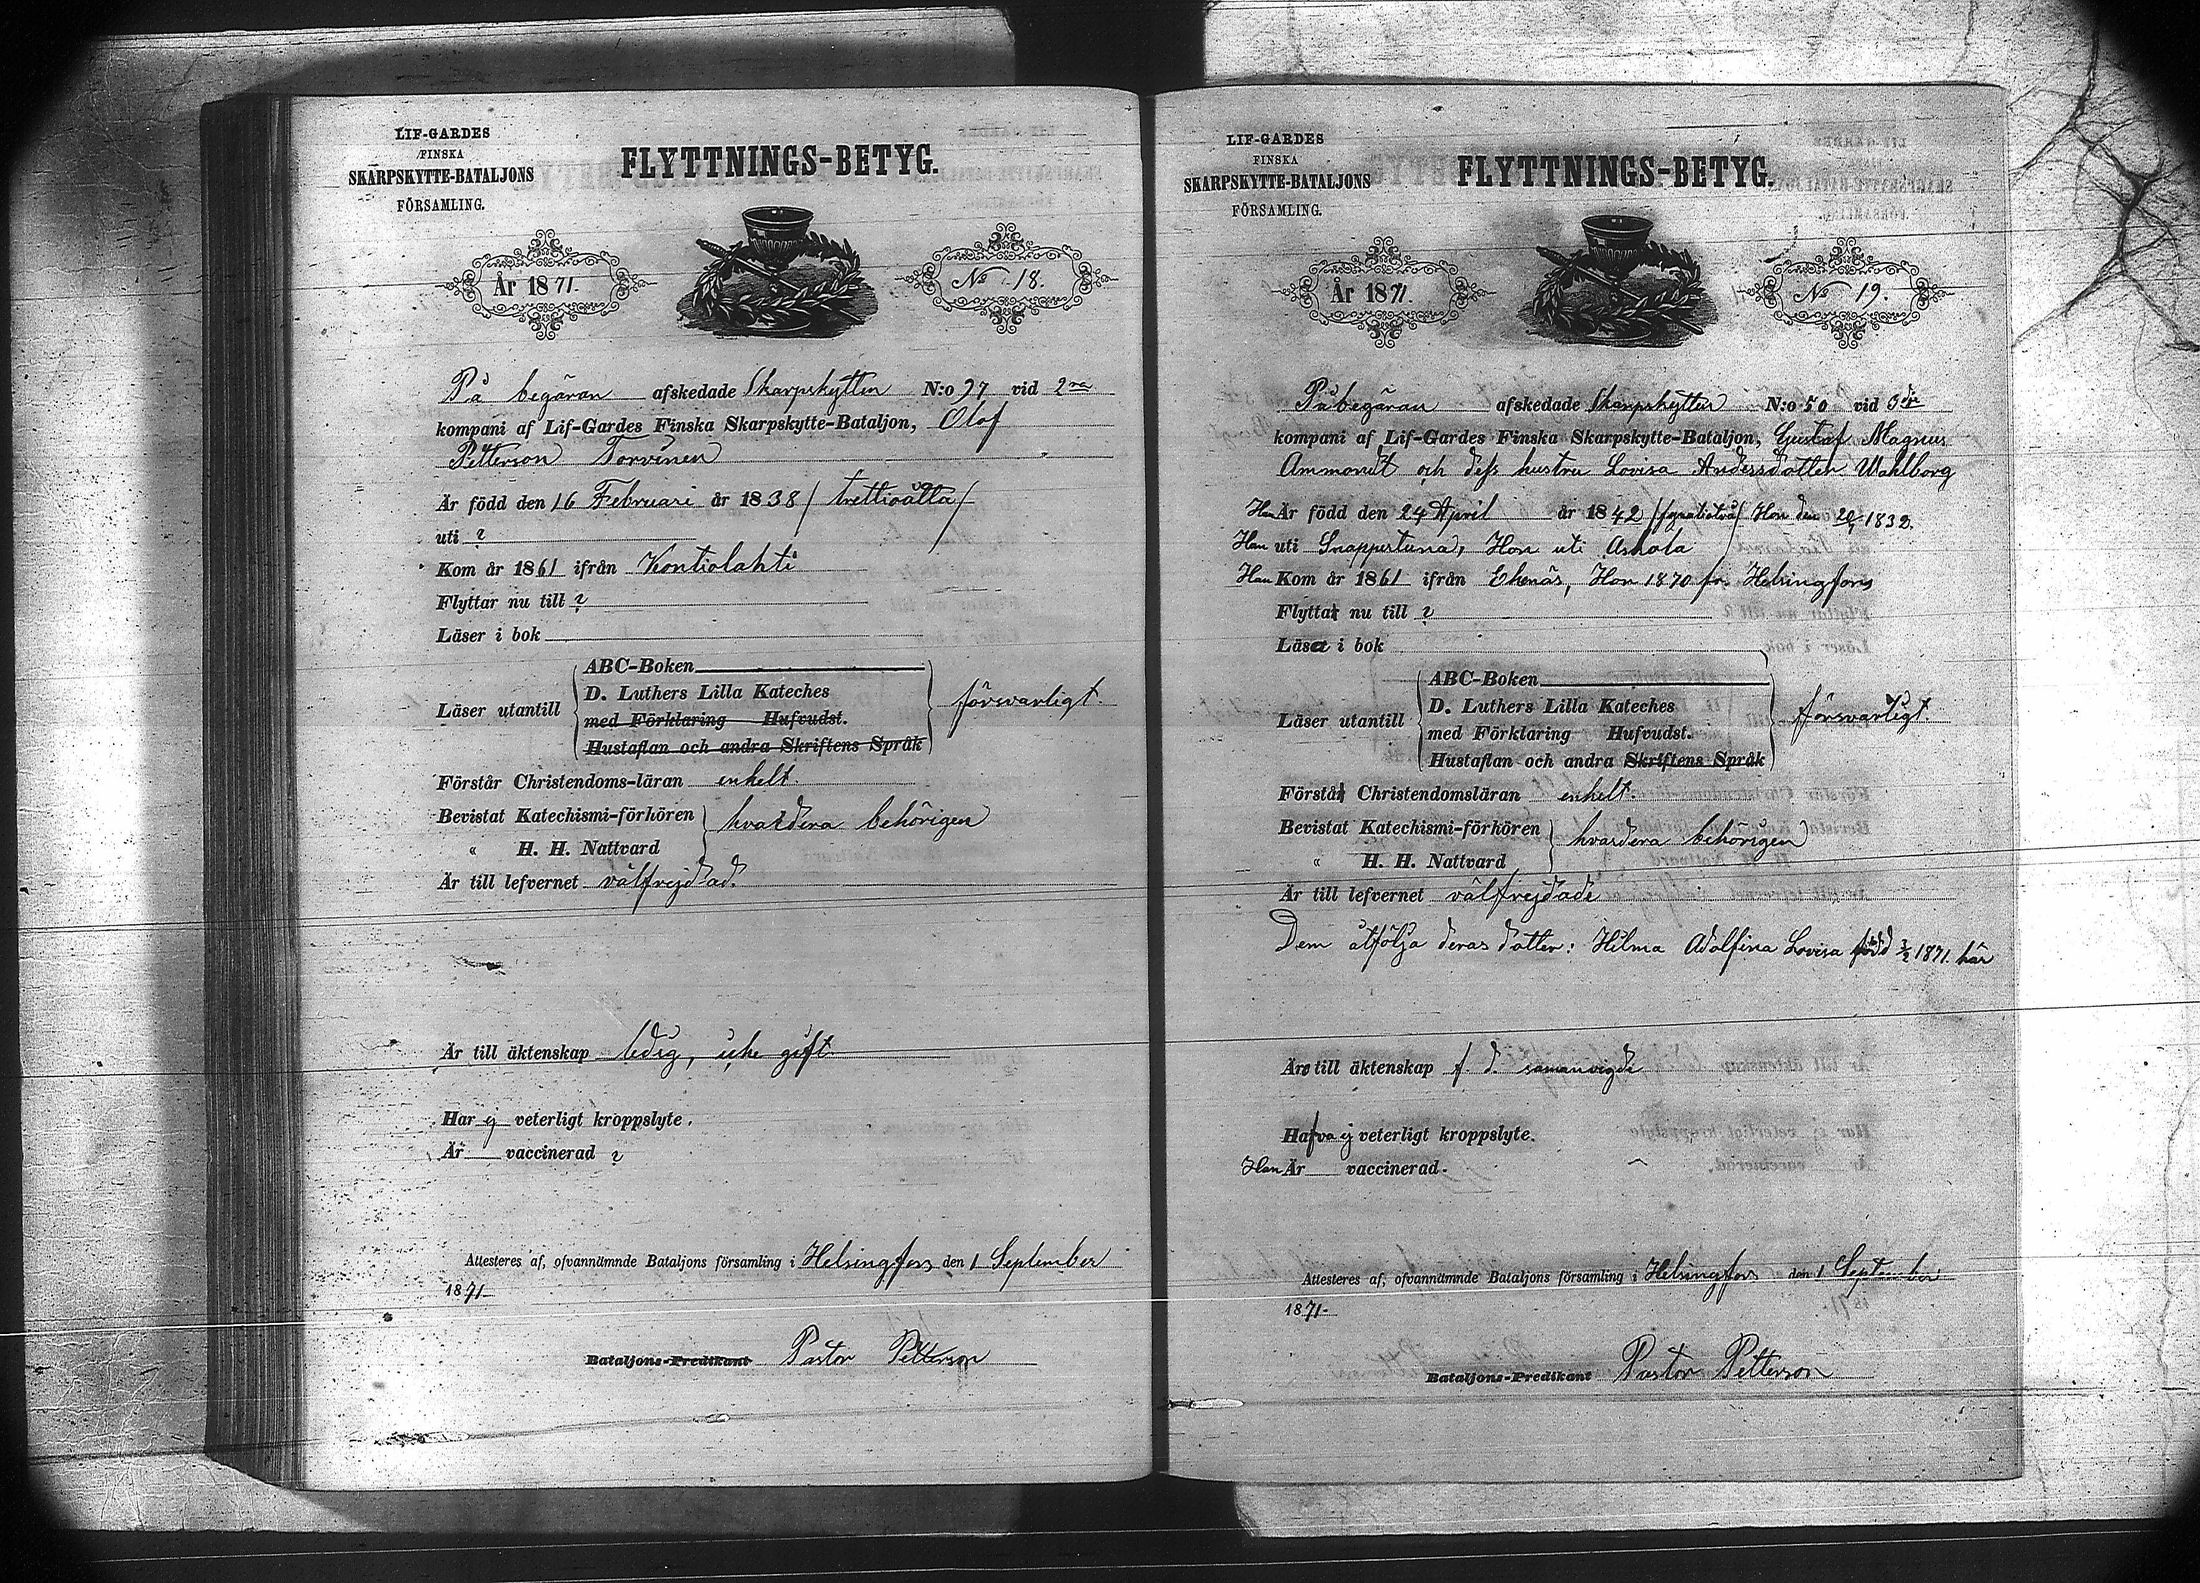 LIF-GARDES
FINSKA
SKARPSKYTTE-BATALJONS
FÖRSAMLING.
FLYTTNINGS-BETYG.
År 1871.
No 18.
På begäran afskedade Skarpskytten N:o 97 vid 2ra
kompani af Lif-Gardes Finska Skarpskytte-Bataljon, Olof
Petterson Torvinen
Är född den 16 Februari år 1838 / trettioåtta /
uti ?
Kom år 1861 ifrån Kontiolahti
Flyttar nu till ?
Läser i bok
Läser utantill
ABC-Boken
D. Luthers Lilla Kateches
med Förklaring Hufvudst.
Hustaflan och andra Skriftens Språk
försvarligt.
Förstår Christendoms-läran enkelt.
Bevistat Katechismi-förhören
" H. H. Nattvard
hvardera behörigen
Är till lefvernet välfrejdad.
Är till äktenskap ledig, icke gift.
Har ej veterligt kroppslyte.
Är vaccinerad ?
Attesteres af, ofvannämnde Bataljons församling i Helsingfors den 1 September
1871.
Bataljons-Predikant Pastor Petterson
LIF-GARDES
FINSKA
SKARPSKYTTE-BATALJONS
FÖRSAMLING.
FLYTTNINGS-BETYG.
År 1871.
No 19.
På begäran afskedade Skarpskytten N:o 50 vid 3dje
kompani af Lif-Gardes Finska Skarpskytte-Bataljon, Gustaf Magnus
Ammondt och dess hustru Lovisa Andersdotter Wahlborg
Han Är född den 24 April år 1842 /fyratiotvå/ Hon den 1832.
Han uti Snappertuna, Hon uti Askola
Han Kom år 1861 ifrån Ekenäs, Hon 1870 fr. Helsingfors
Flytta nu till ?
Läsa i bok
Läser utantill
ABC-Boken
D. Luthers Lilla Kateches
med Förklaring Hufvudst.
Hustaflan och andra Skriftens Språk
försvarligt.
Förstå Christendomsläran enkelt.
Bevistat Katechismi-förhören
" H. H. Nattvard
hvardera behörigen
Är till lefvernet välfrejdade
Dem åtfölja deras dotter: Hilma Adolfina Lovisa född 3/2 1871. här
Äro till äktenskap f. d. samanvigde
Hafva ej veterligt kroppslyte.
Han Är vaccinerad.
Attesteres af, ofvannämnde Bataljons församling i Helsingfors den 1 September
1871.
Bataljons-Predikant Pastor Petterson